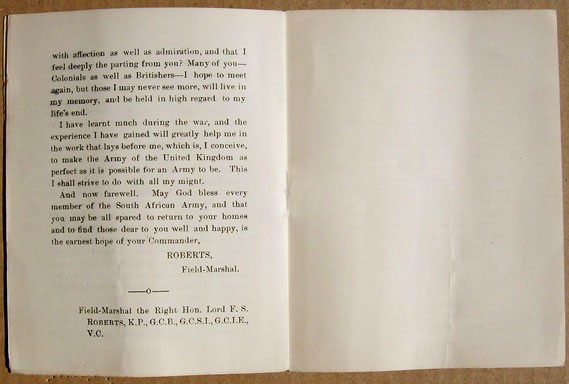 with affection as well as admiration, and that I
feel deeply the parting from you? Many of you—
Colonials as well as Britishers—I hope to meet
again, but those I may never see more, will live in
my memory, and be held in high regard to my
life's end.
I have learnt much during the war, and the
experience I have gained will greatly help me in
the work that lays before me, which is, I conceive,
to make the Army of the United Kingdom as
perfect as it is possible for an Army to be. This
I shall strive to do with all my might.
And now farewell. May God bless every
member of the South African Army, and that
you may be all spared to return to your homes
and to find those dear to you well and happy, is
the earnest hope of your Commander,
ROBERTS,
Field-Marshal.
——o——
Field-Marshal the Right Hon. Lord F. S.
ROBERTS, K.P., G.C.B., G.C.S.I., G.C.I.E.,
V.C.